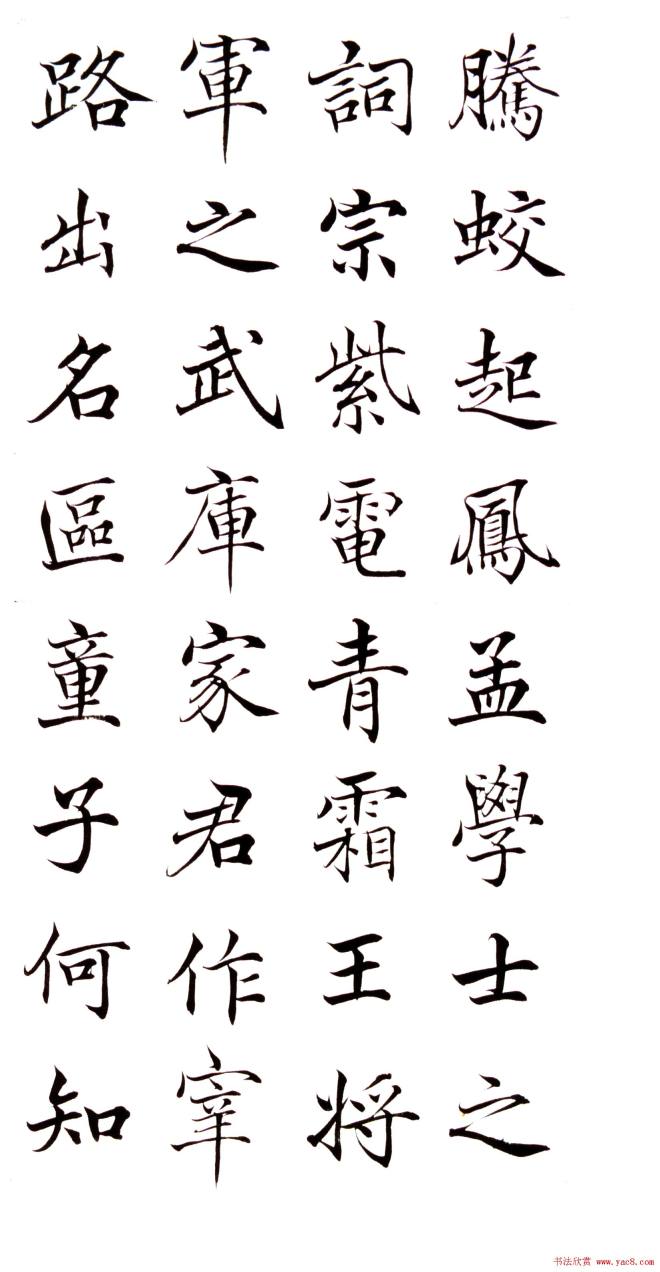 騰蛟起鳳孟學士之
詞宗紫電青霜王将
軍之武庫家君作宰
路出名區童子何知
书法欣赏 www.yac8.com